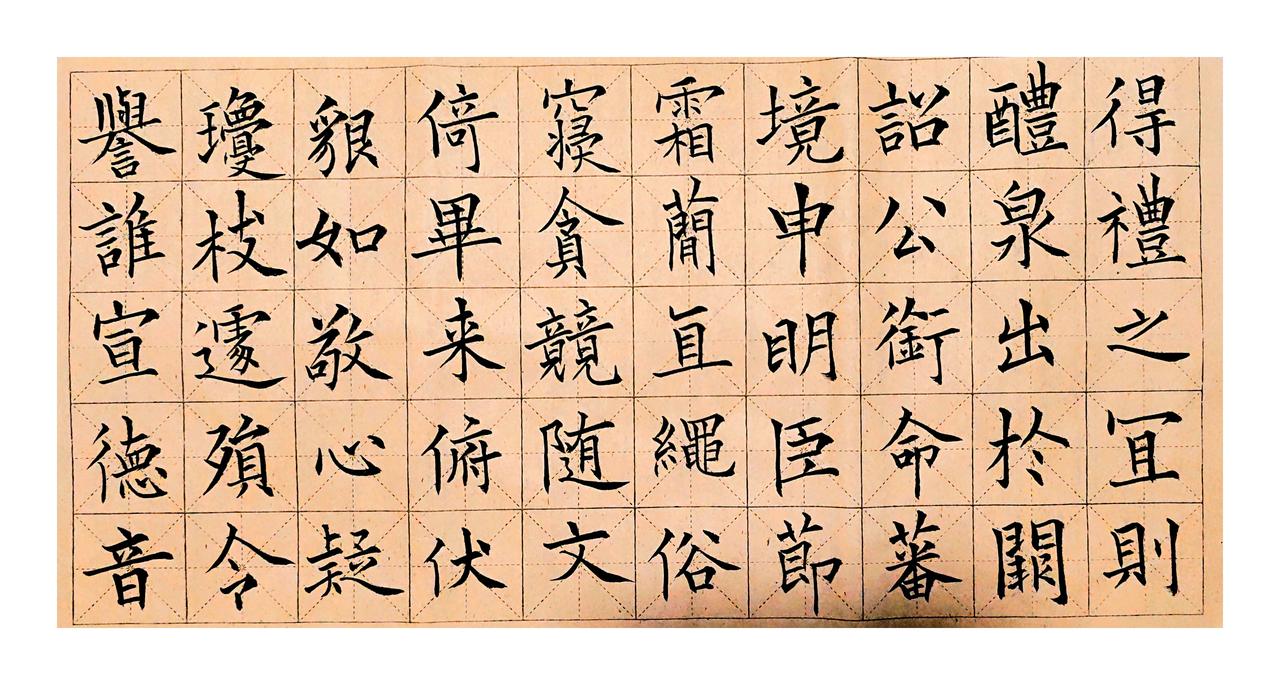 得禮之冝則
醴泉出於闕
詔公銜命蕃
境申明臣節
霜蕳直繩俗
寢貪競随文
倚畢来俯伏
貇如敬心疑
瓊枝遽殞令
譽誰宣德音